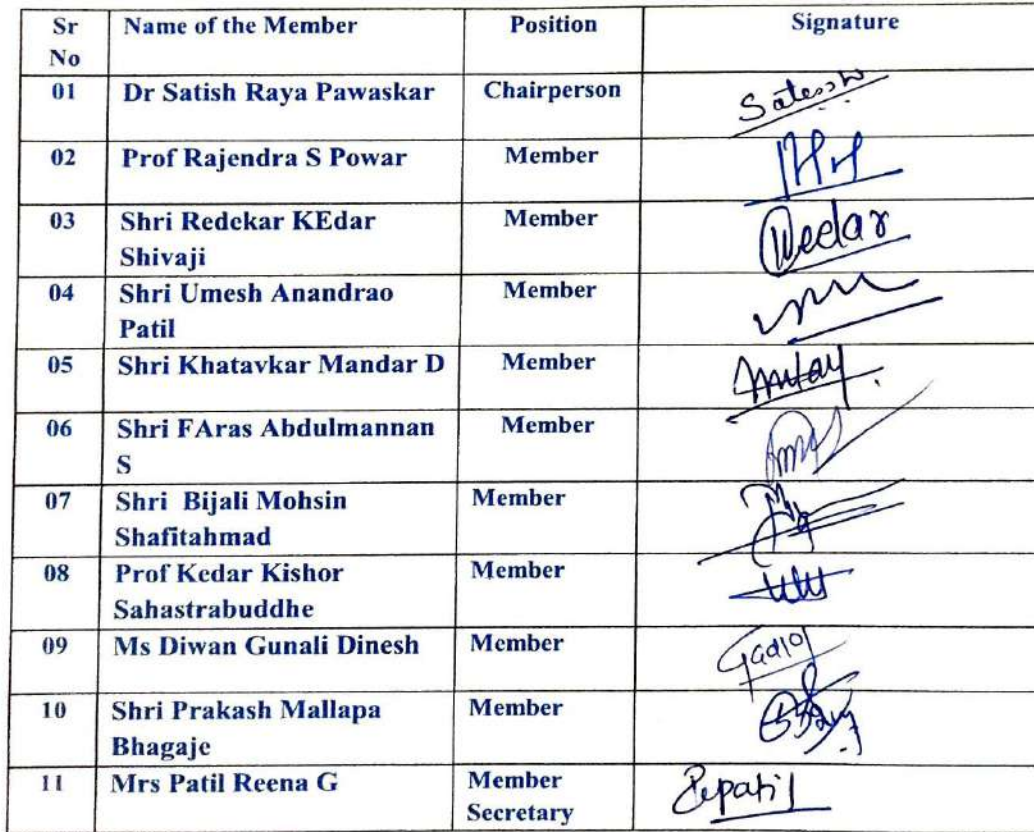 Sr No Name of the Member Position Signature
01 Dr Satish Raya Pawaskar Chairperson
02 Prof Rajendra S Powar Member
03 Shri Redekar KEdar Member
Shivaji
04 Shri Umesh Anandrao Member
Patil
05 Shri Khatavkar Mandar D Member
06 Shri FAras Abdulmannan Member
S
07 Shri Bijali Mohsin Member
Shafitahmad
08 Prof Kedar Kishor Member
Sahastrabuddhe
09 Ms Diwan Gunali Dinesh Member
10 Shri Prakash Mallapa Member
Bhagaje
11 Mrs Patil Reena G Member
Secretary